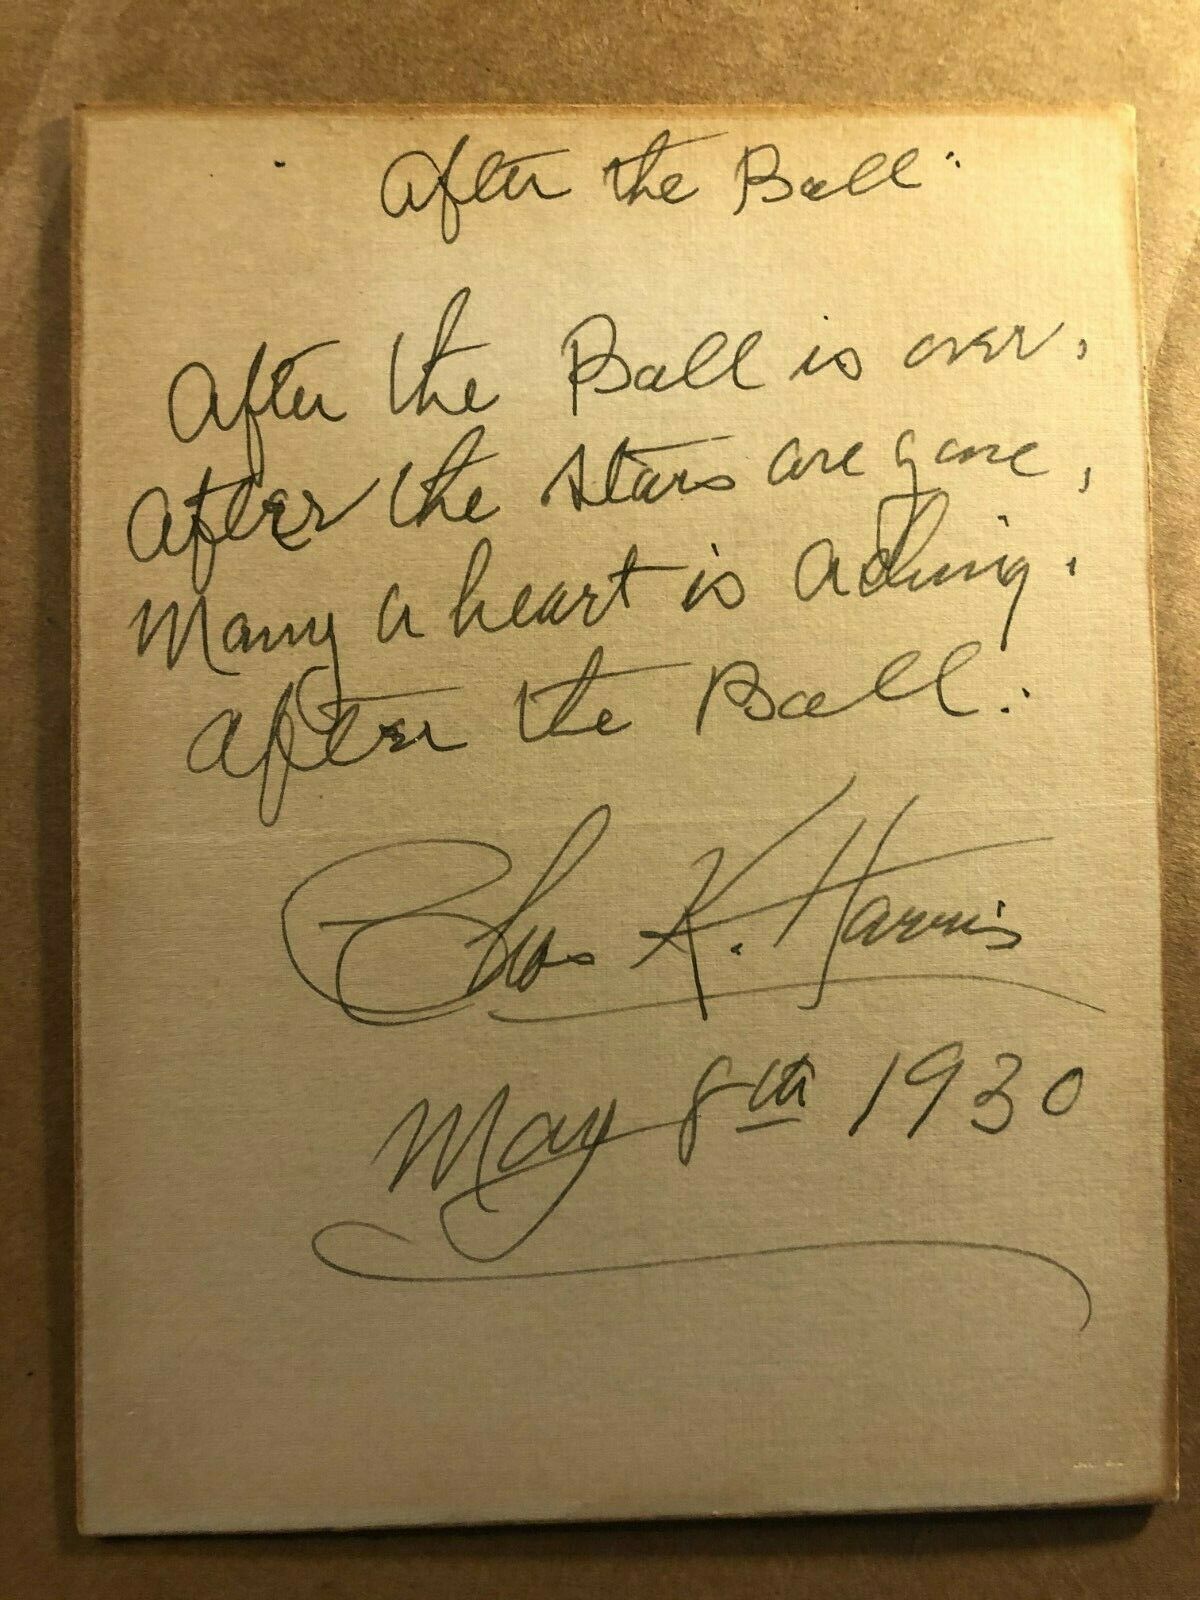 After the Ball"
After the Ball is over,
After the stars are gone,
Many a heart is aching,
After the Ball.
Chas K. Harris
May 8th 1930